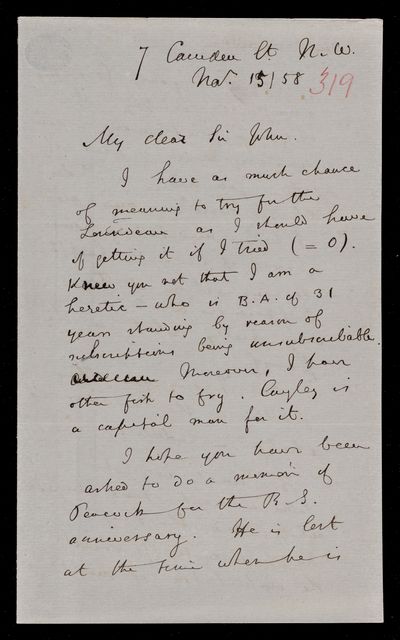 7 Camden St. N.W.
Nov. 15/58 319
My dear Sir John.
I have as much chance
of meaning to try for the
Lowndean as I should have
of getting it if I tried (= 0).
Knew you not that I am a
heretic – who is B.A. of 31
years standing by reason of
subscriptions being unsubscribable.
Moreover, I have
other fish to fry. Cayley is
a capital man for it.
I hope you have been
asked to do a memoir of
Peacock for the R.S.
anniversary. He is lost
at the time when he is